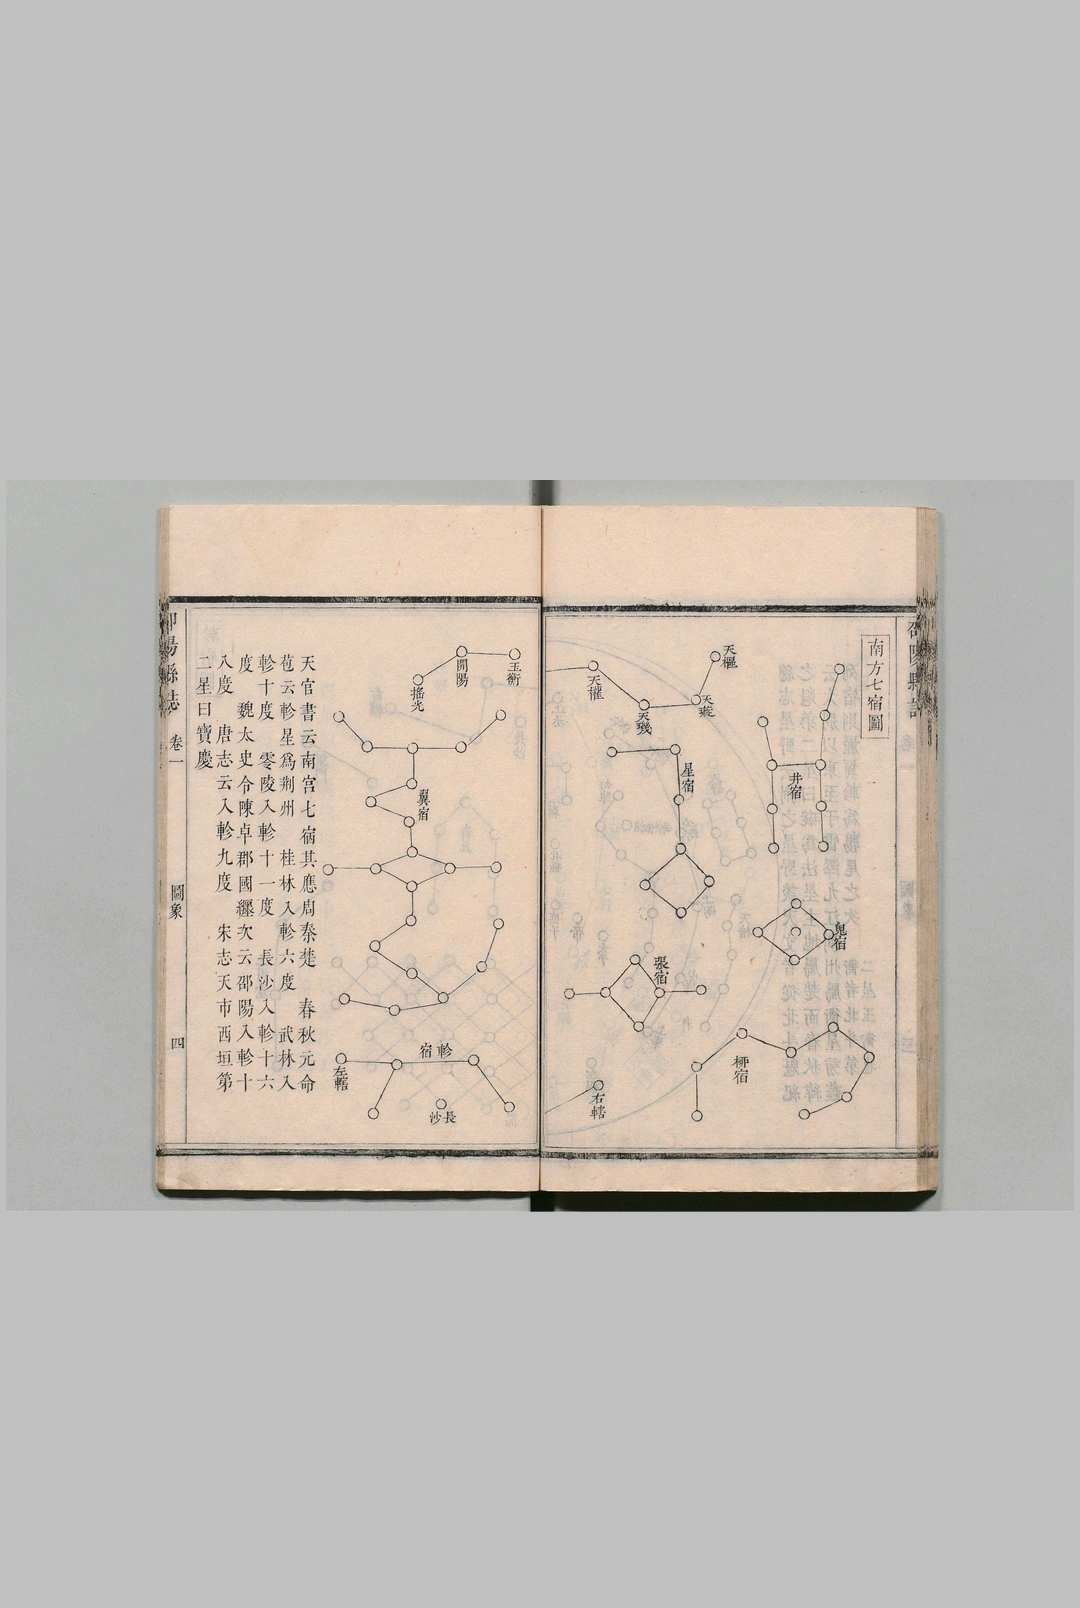 邵陽縣志
南方七宿圖
井宿
鬼宿
柳宿
天樞
天璇
天璣
天權
星宿
張宿
右轄
玉衡
開陽
搖光
翼宿
軫宿
左轄
長沙
天官書云南宮七宿其應周秦楚　春秋元命
苞云軫星爲荆州　桂林入軫六度　武林入
軫十度　零陵入軫十一度　長沙入軫十六
度　魏太史令陳卓郡國纏次云邵陽入軫十
八度　唐志云入軫九度　宋志天市西垣第
二星曰寶慶
卷一
圖象
四